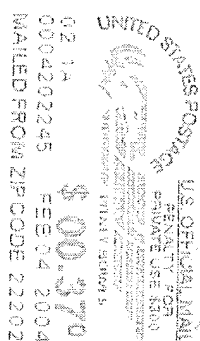 UNITED STATES POSTAGE
U.S. OFFICIAL MAIL
PENALTY FOR
PRIVATE USE $300
PITNEY BOWES
02 1A $ 00.370
0004202245 FEB 04 2004
MAILED FROM ZIP CODE 22202